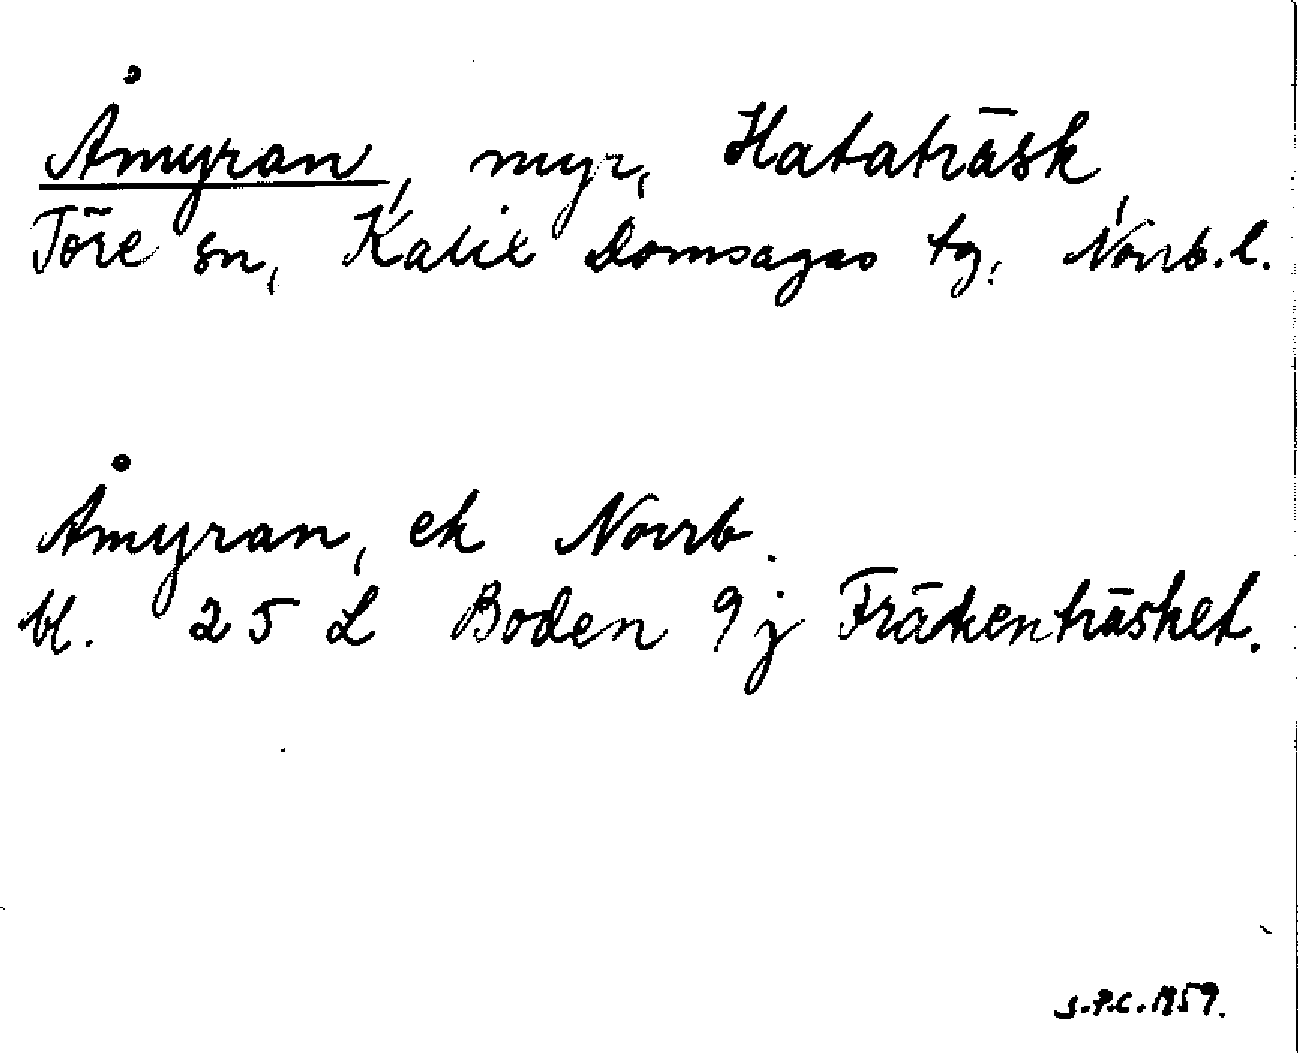 Åmyran, myr, Hataträsk,
Töre sn, Kalix Domsagas tg, Norrb.l.
Åmyran, ek Norrb.
bl. 25 L Boden 9j Fräkenträsket.
S.P.C. 1959.